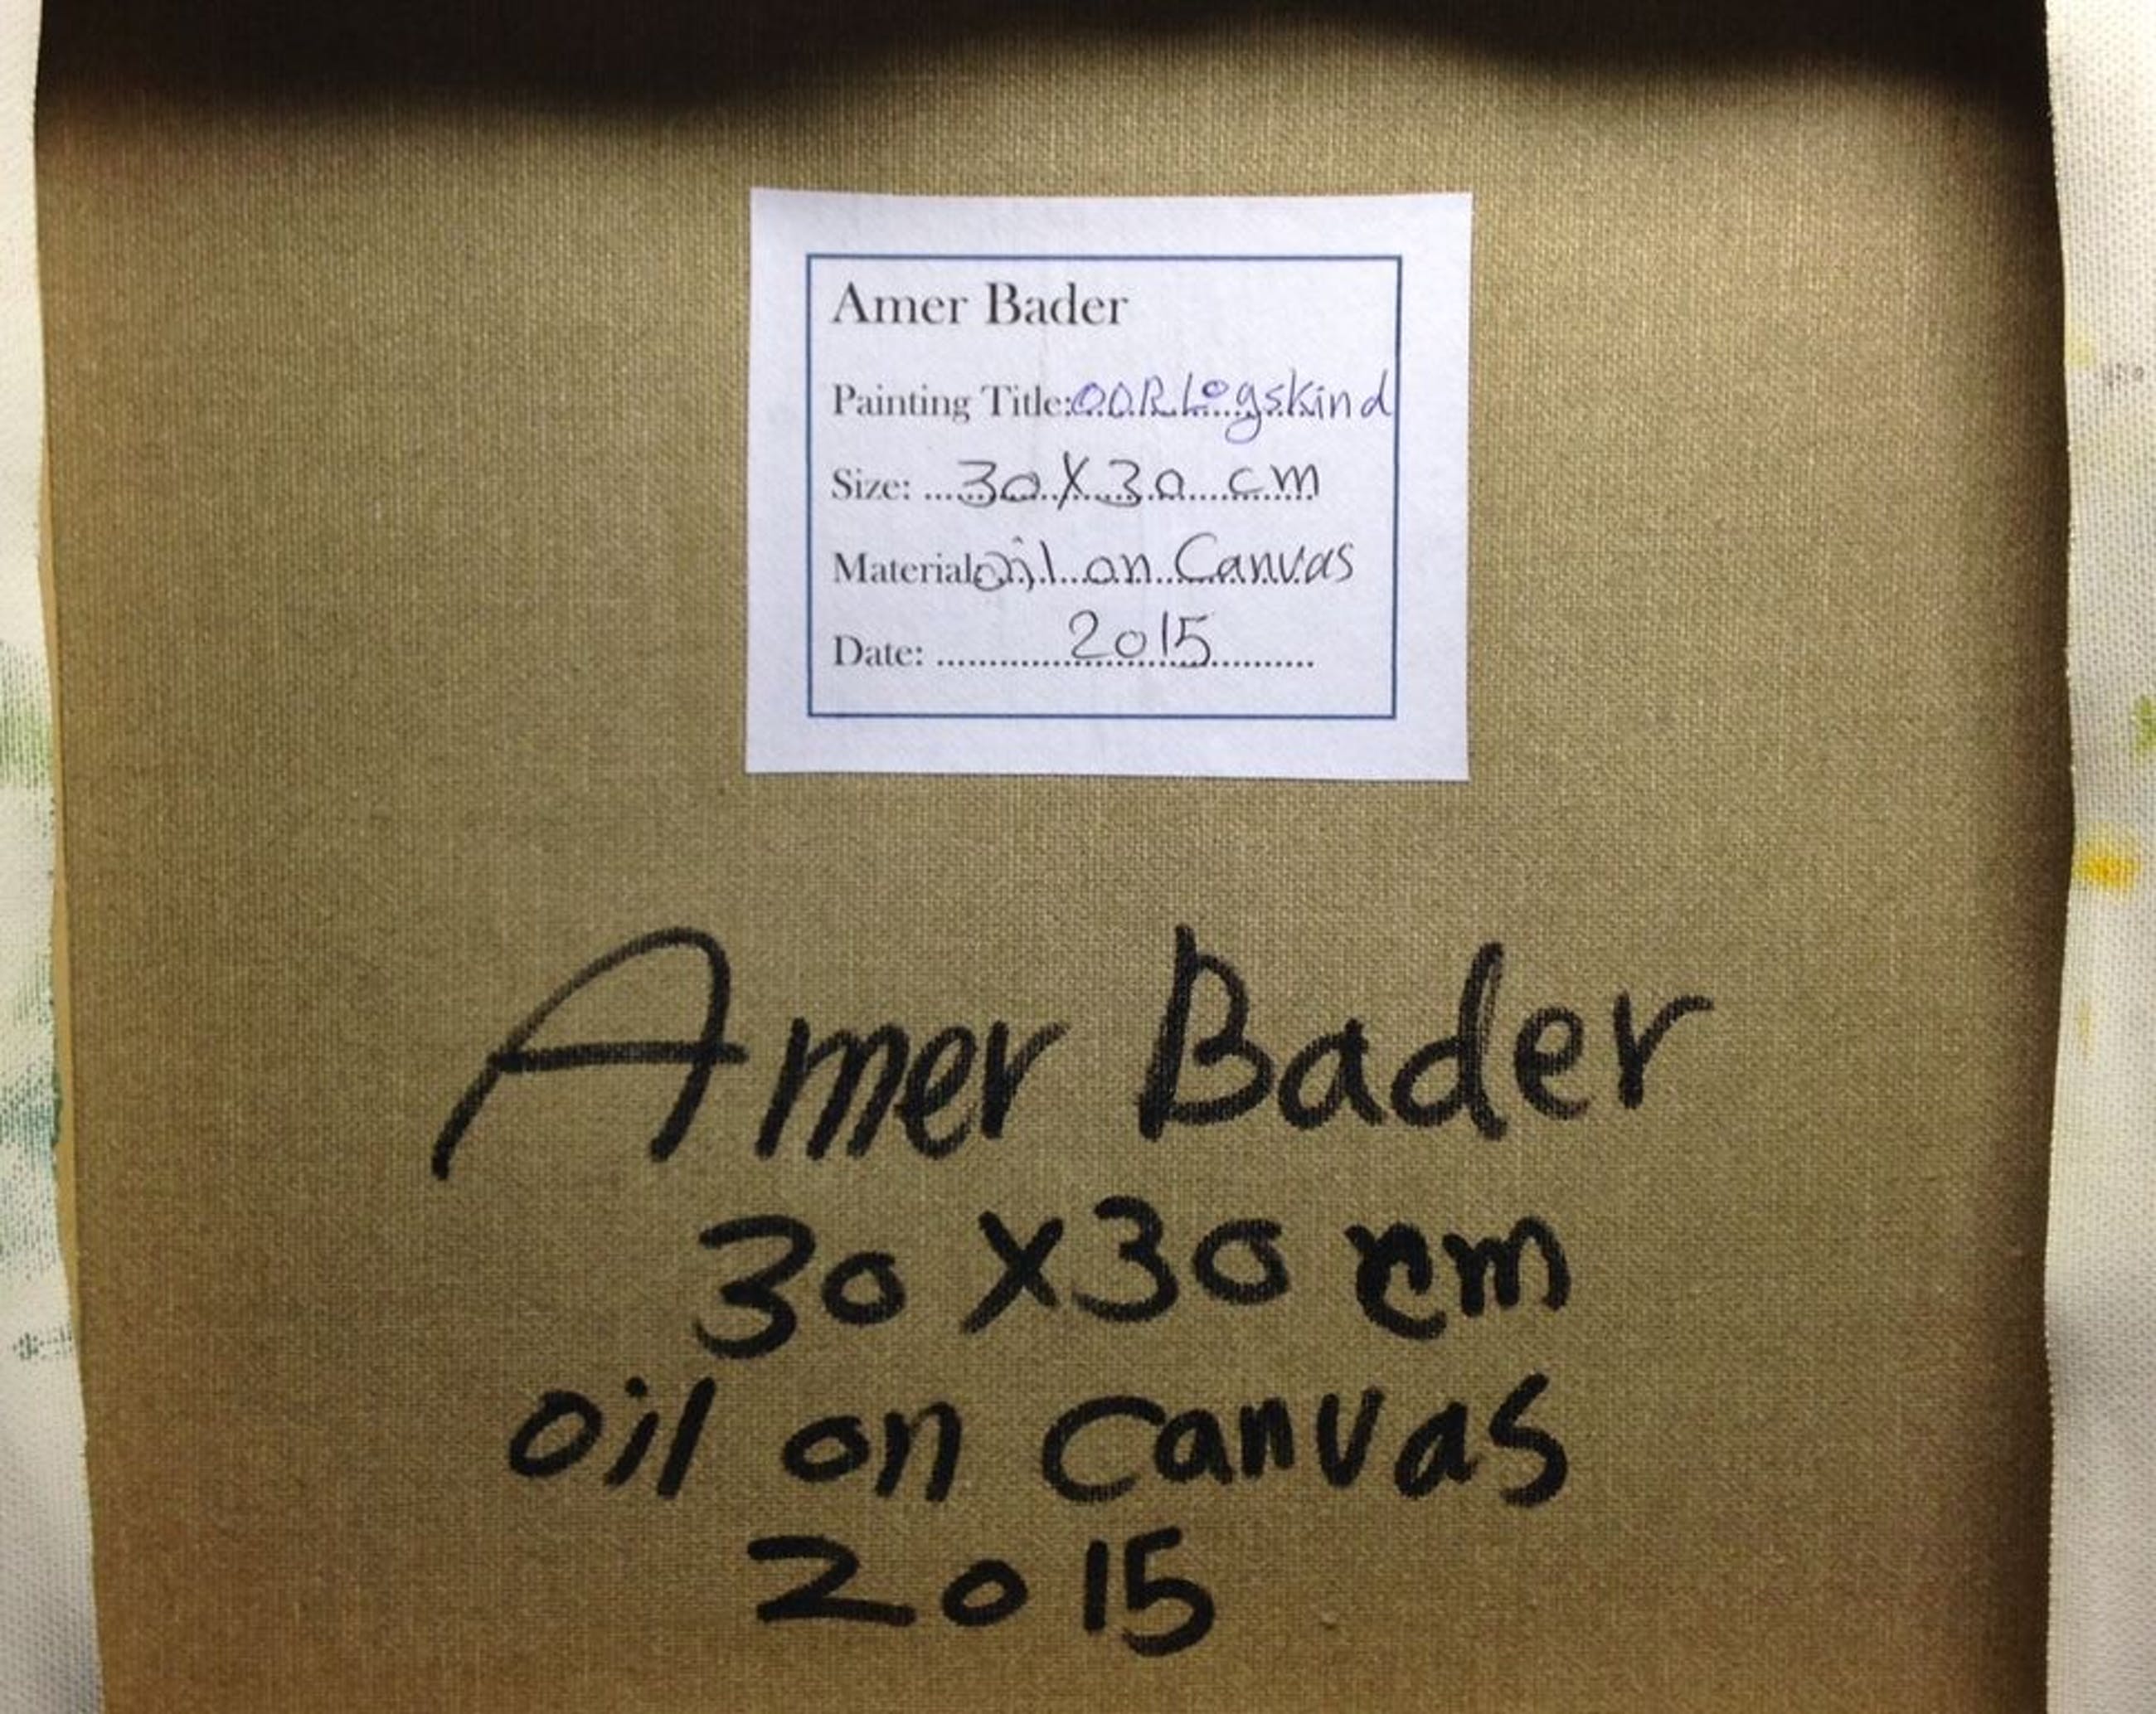 Amer Bader
Painting Title: OORLogskind
Size: 30X30 cm
Material: oil on Canvas
Date: 2015
Amer Bader
30X30 cm
oil on Canvas
2015